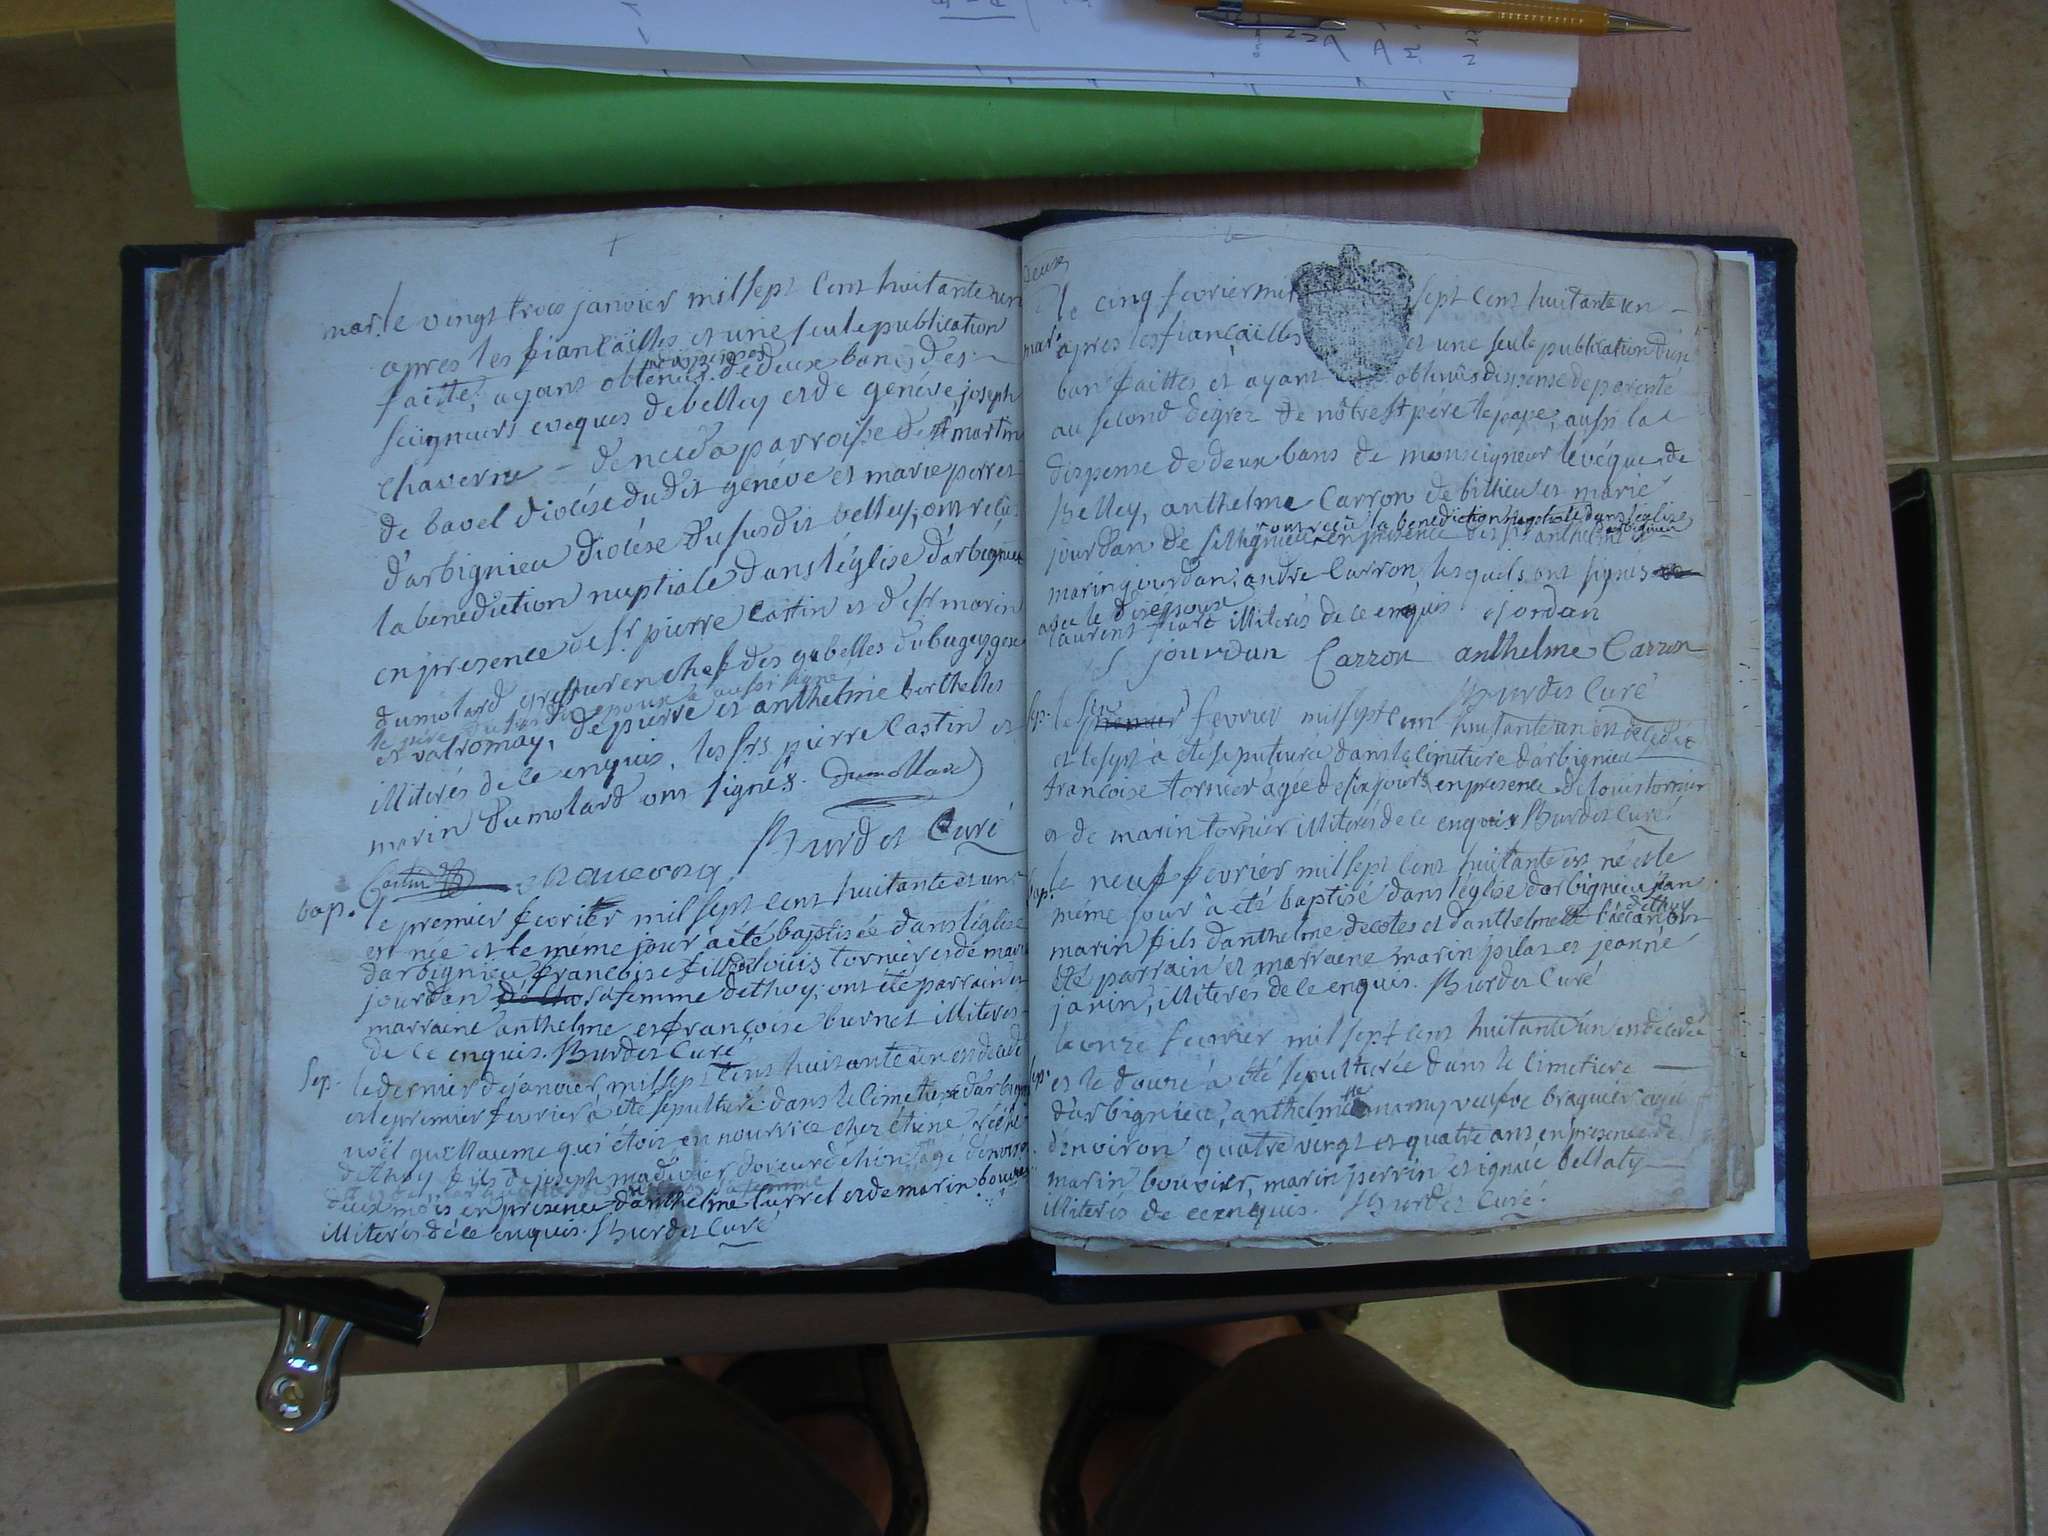 mar. le vingt trois janvier mil sept cent huitante un
apres les fiancailles et une seule publication
faitte, ayant obtenus dispenses de deux bans, des
seigneurs eveques de belley et de genéve, joseph
chaverne de parroisse de st martin
de bavel diocése dudit genéve et marie perret
d'arbignieu diocése du susdit belley, ont reçus
la benediction nuptiale dans l'église d'arbignieu
en presence de sr. pierre Castin et de sr marin
dumolard en chef des gabelles du bugey gex
le pere epoux a aussi signé
et valromay, de pierre et anthelme berthelles
illiterés de ce enquis, les srs. pierre Castin et
marin dumolard ont signés. Dumollard
Burdet Curé
Castin
bap. le premier fevrier mil sept cent huitante et un
est née et le meme jour a eté baptisée dans l'église
d'arbignieu francoise fille de louis tornier et de marie
jourdan sa femme de thoy, ont été parrain et
marraine anthelme et françoise burnet illiterés
de ce enquis. Burdet Curé
Sep. le dernier de janvier mil sept cent huitante un est decedé
et le premier fevrier a eté sepulturé dans le cimetiere d'arbignieu
noël guillaume qui étoit en nourrice chez étiene
de thoy fils de joseph agé d'environ
deux mois en presence d'anthelme turrel et de marin bouvier
illiterés de ce enquis. Burdet Curé
deux
le cinq fevrier mil sept cent huitante un
mar. apres les fiancailles et une seule publication d'un
ban faittes et ayant obtenus dispense de parenté
au second degrez de nôtre st pere le pape, aussi la
dispense de deux bans de monseigneur levéque de
Belley, anthelme Carron de billieu et marie
ont reçu la benediction nuptiale dans l'église
jourdan de Silignieu en presence des srs anthelme
marin jourdan, andre Carron lesquels ont signés
avec le dit époux
laurent illiterés de ce enquis jordan
jourdan Carron anthelme Carron
Burdet Curé
Sep. le six premier fevrier mil sept cent huitante un est decedée
et le sept a eté sepulturée dans le cimetiere d'arbignieu
francoise tornier agée de six jours en presence de louis tornier
et de marin tornier illiterés de ce enquis Burdet Curé
bap. le neuf fevrier mil sept cent huitante est né et le
méme jour a eté baptisé dans l'église d'arbignieu jean
de thoy
marin fils d'anthelme decotes et d'anthelme
été parrain et marraine marin pilat et jeanne
jarin, illiterés de ce enquis. Burdet Curé
Sep. le onze fevrier mil sept cent huitante un est decedée
et le douze a été sepulturée dans le cimetiere
d'arbignieu, anthelmette veufve braguier agée
d'environ quatre vingt et quatre ans, en presence de
marin bouvier, marin perrin et ignace bellaty
illiterés de ce enquis. Burdet Curé